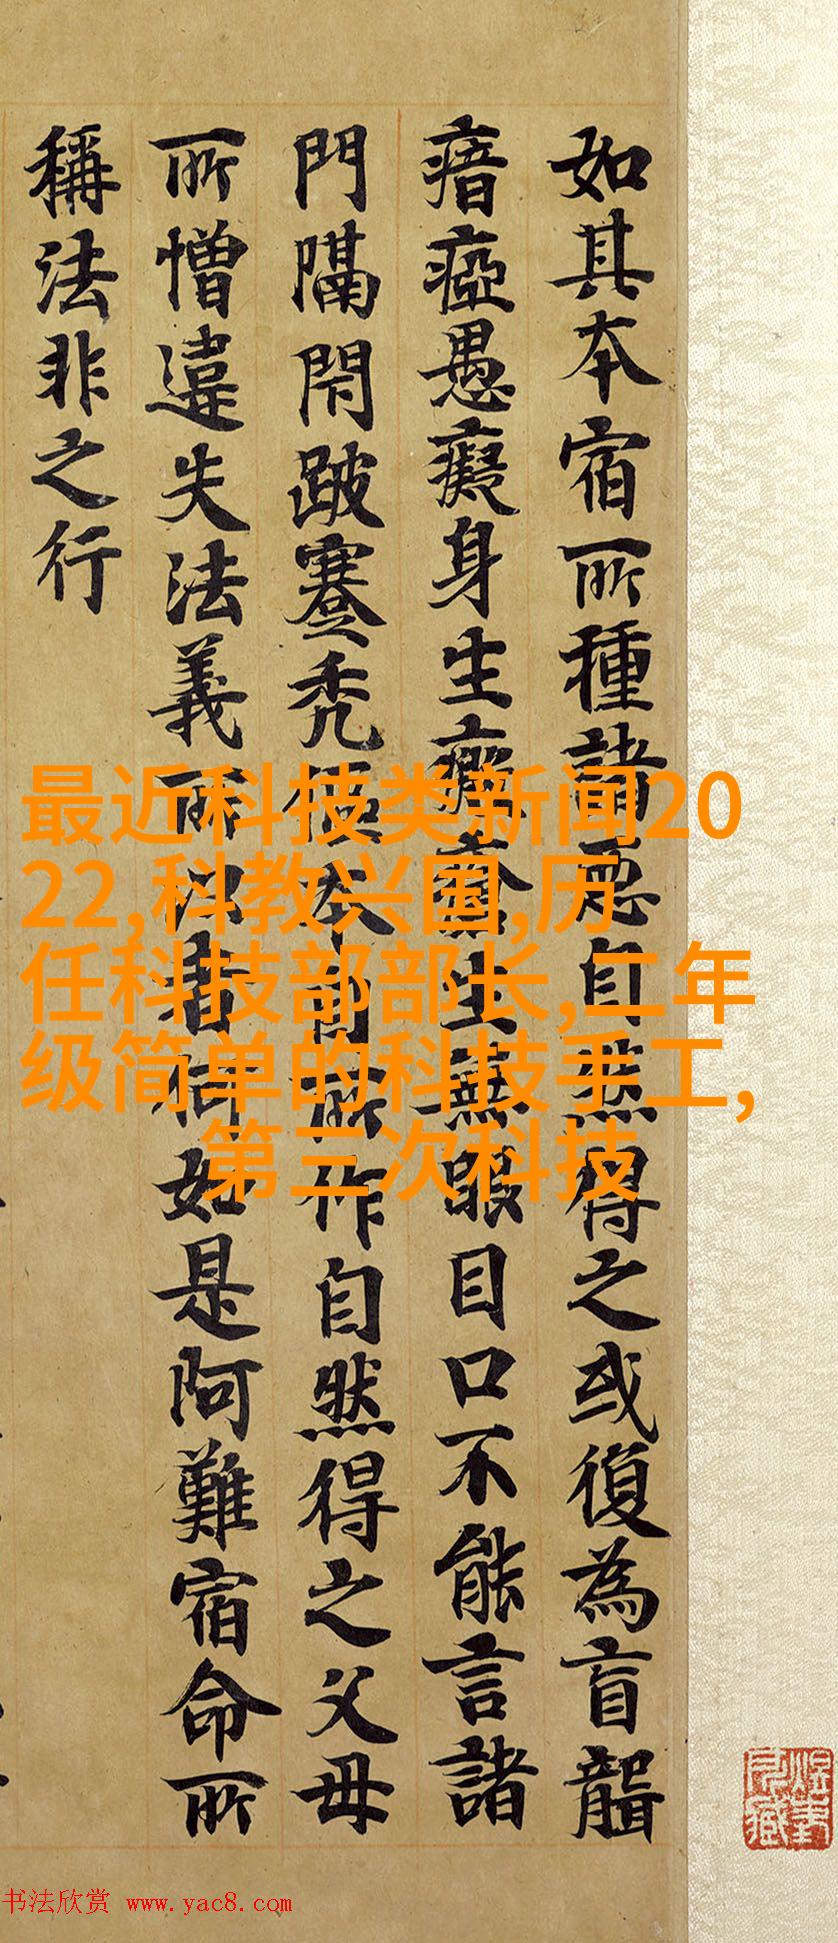 如其本宿所種諸惡自然得之或復為盲聾
瘖瘂愚癡身生生無眼目口不能言諸
門隔閇跛蹇禿傴本自所作自然得之父母
所憎違失法義所以者何如是阿難宿命所
稱法非之行
最近科技类新闻20
22,科教兴国,历
任科技部部长,二年
级简单的科技手工,
第三次科技
书法欣赏 www.yac8.com